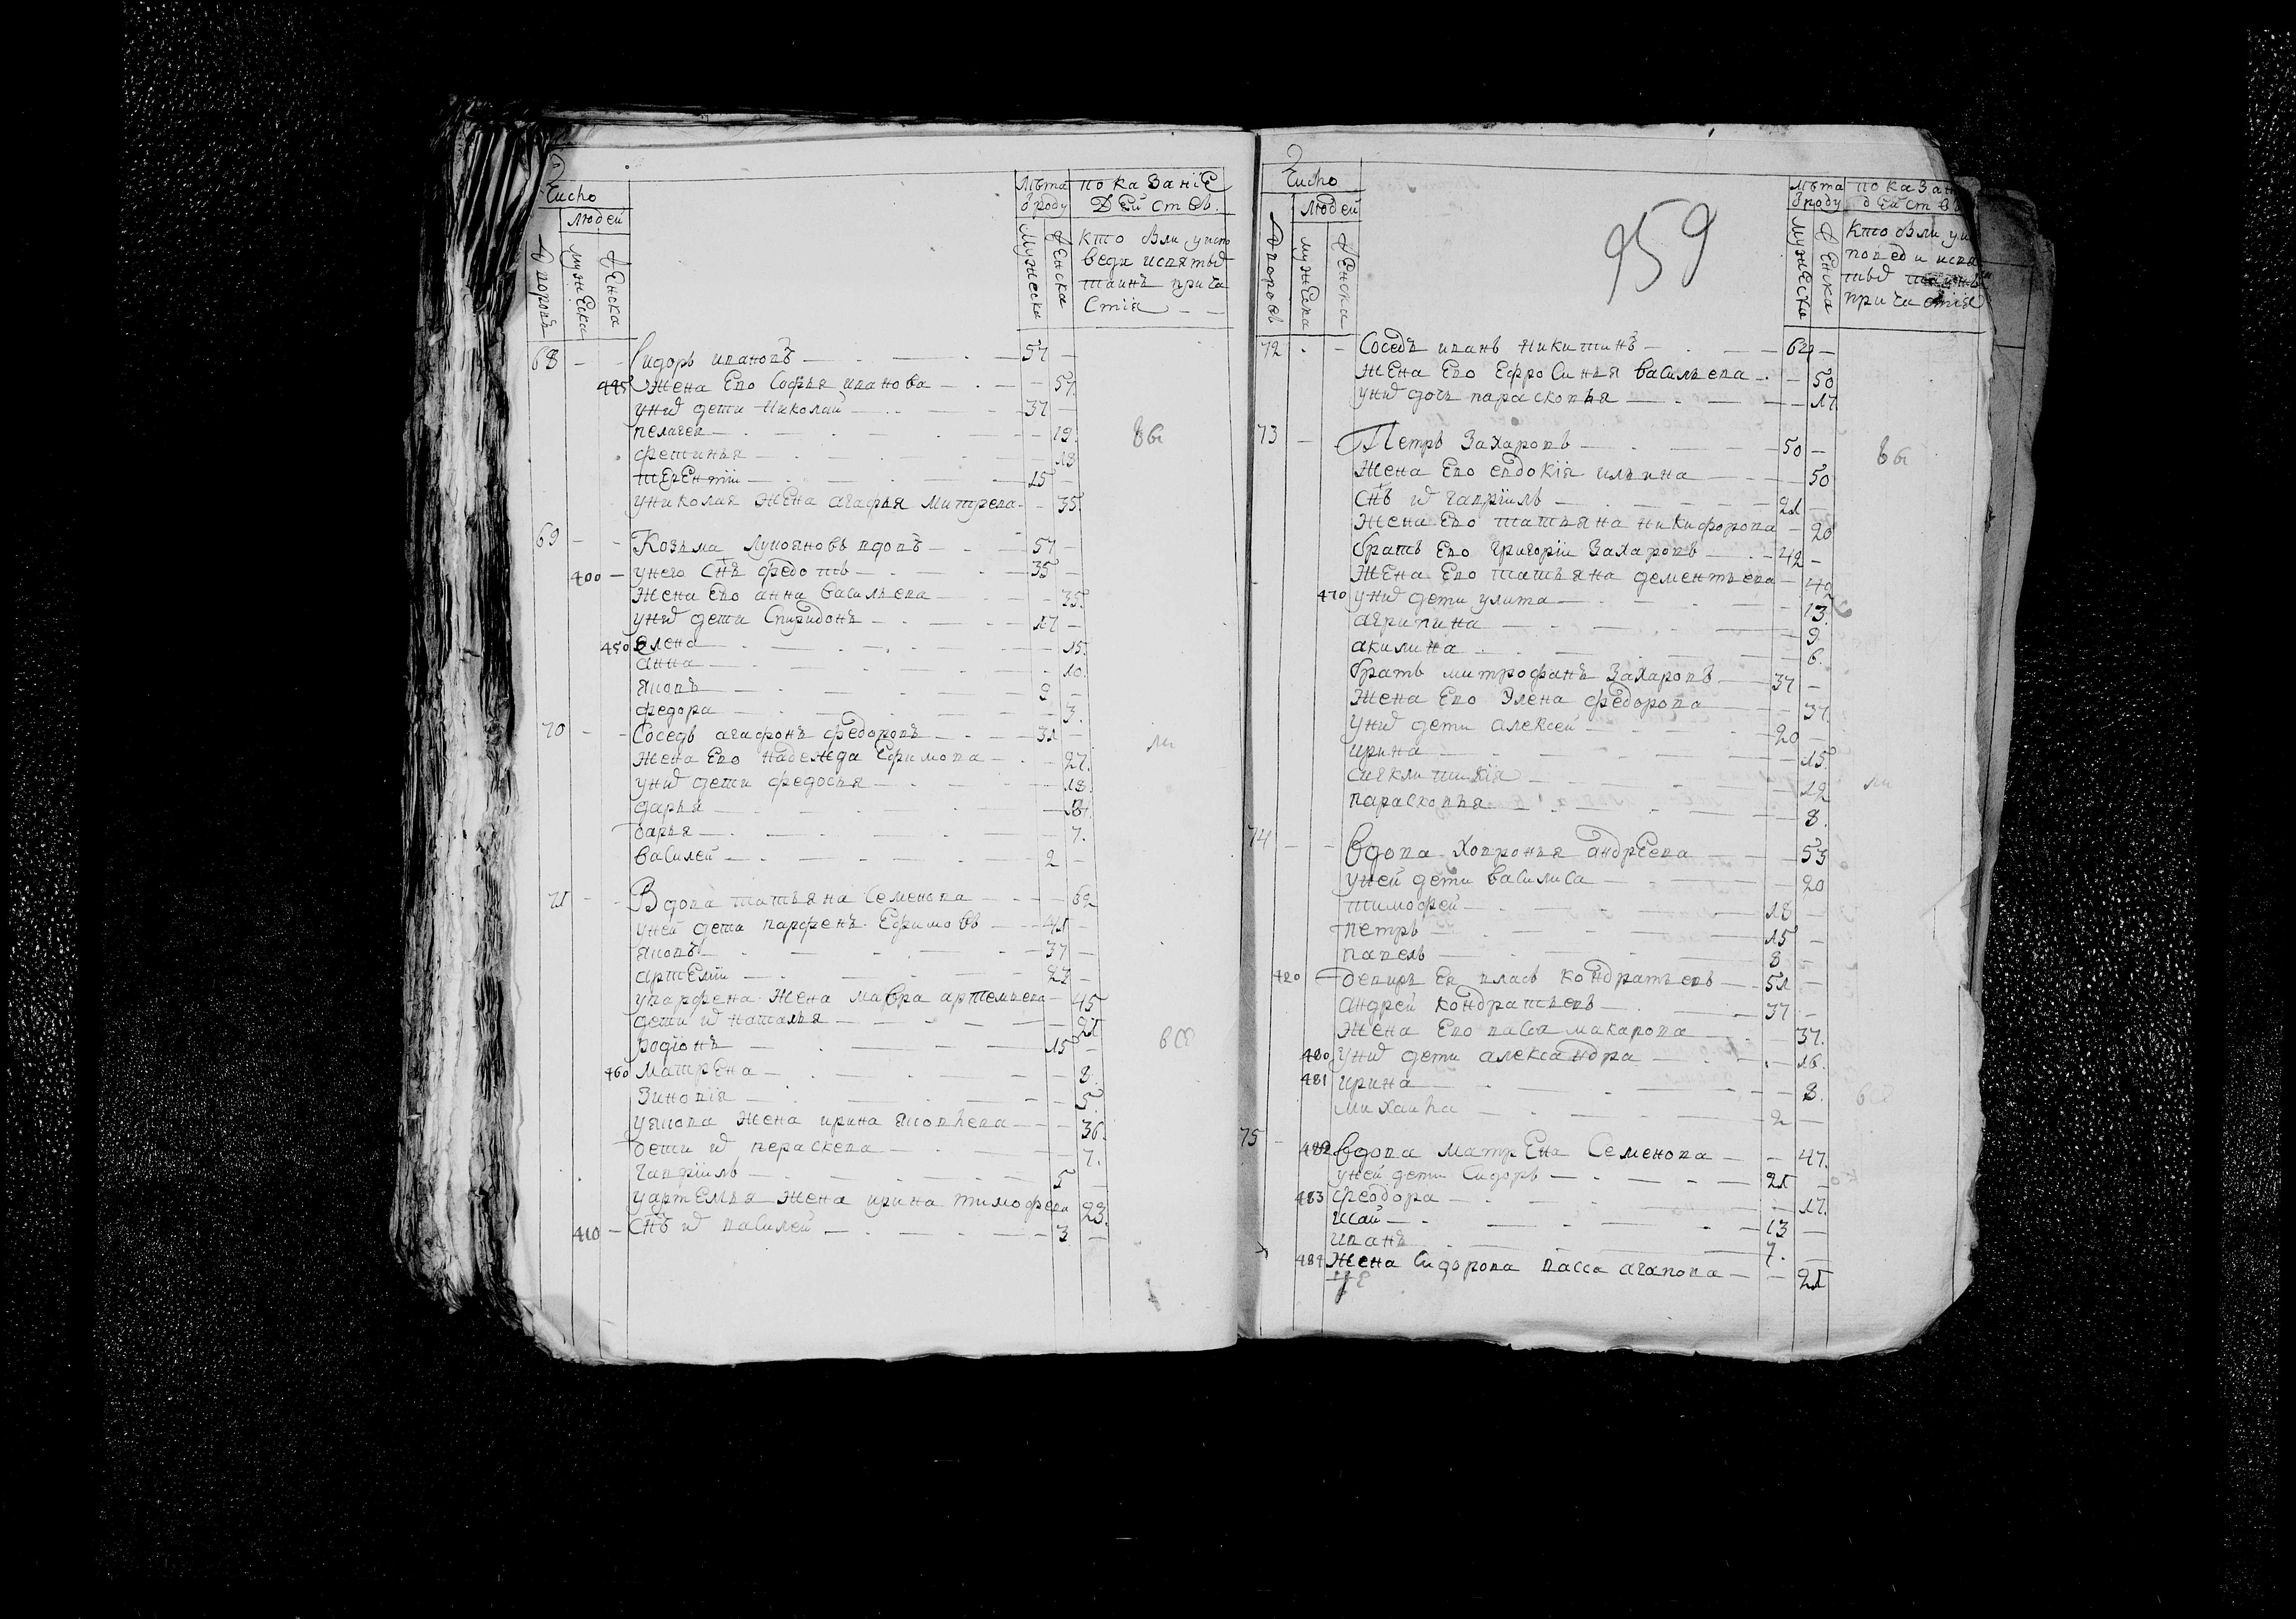 Число
людей
дворовъ
мужеска
женска
лѣта
ѿроду
мужеска
женска
показаніе
действъ.
кто были уиспо
веди исвятыхъ
таинъ прича
стія
68 Сидоръ ивановъ 57
445 жена Ево Софья иванова 57.
унихъ дети Николай 37
пелагея 19.
фетинья 18
терентіи 15
униколая жена агафья митрева 35.
69 Козьма Лукояновъ вдовъ 57
400 унего снъ федотъ 35
жена Ево анна васильева 35.
унихъ дети Спиридонъ 17
450 Елена 15.
анна 10.
яковъ 9
федора 3.
70 Соседъ агафонъ федоровъ 31
жена Ево Надежда Ефимова 27.
унихъ дети федосья 18.
дарья
варья 7.
василей 2
71 Вдова татьяна Семенова 62
уней дети парфенъ Ефимовъ 41
яковъ 37
артемїи 27
упарфена жена мавра артемьева 45
дети их наталья 21
родїонъ 15
460 матрена 8.
Зиновія 5.
уякова жена ирина яковлева 36.
дети их пераскева 7.
гаврїилъ 5
уартемья жена ирина тимофева 23.
410 снъ их василей 3
вы
ли
все
959
Число
людей
дворовъ
мужеска
женска
лѣта
ѿроду
мужеска
женска
показан
действъ
кто были уис
повѣди исвя
тыхъ таинъ
причастія
72 Соседъ иванъ никитинъ 62
жена Ево Ефросинья васильева 50
унихъ дочь парасковья 17
73 Петръ Захаровъ 50
жена Ево евдокія ильина 50
снъ их гаврїилъ 21
жена Ево татьяна никифорова 20
братъ Ево григоріи Захаровъ 42
жена Ево татьяна дементьева 40
470 унихъ дети улита 13.
агрипина 9
акилина 6.
братъ митрофанъ Захаровъ 37
жена Ево Элена федорова 37.
унихъ дети алексей 20
ирина 15
сигклитикія 12
парасковья 8.
74 вдова Ховронья андреева 53
уней дети василиса 20
тимофей 18
петръ 15
павелъ 8
420 деверь Ея власъ кондратьевъ 51
андрей кондратьевъ 37
жена Ево васса макарова 37.
480 унихъ дети александра 16.
481 ирина 8.
михаила 2
75 482 вдова матрена Семенова 47.
уней дети Сидоръ 21
483 феодора 17.
исай 13
иванъ 7.
484 жена Сидорова васса агапова 21
вы
ли
все